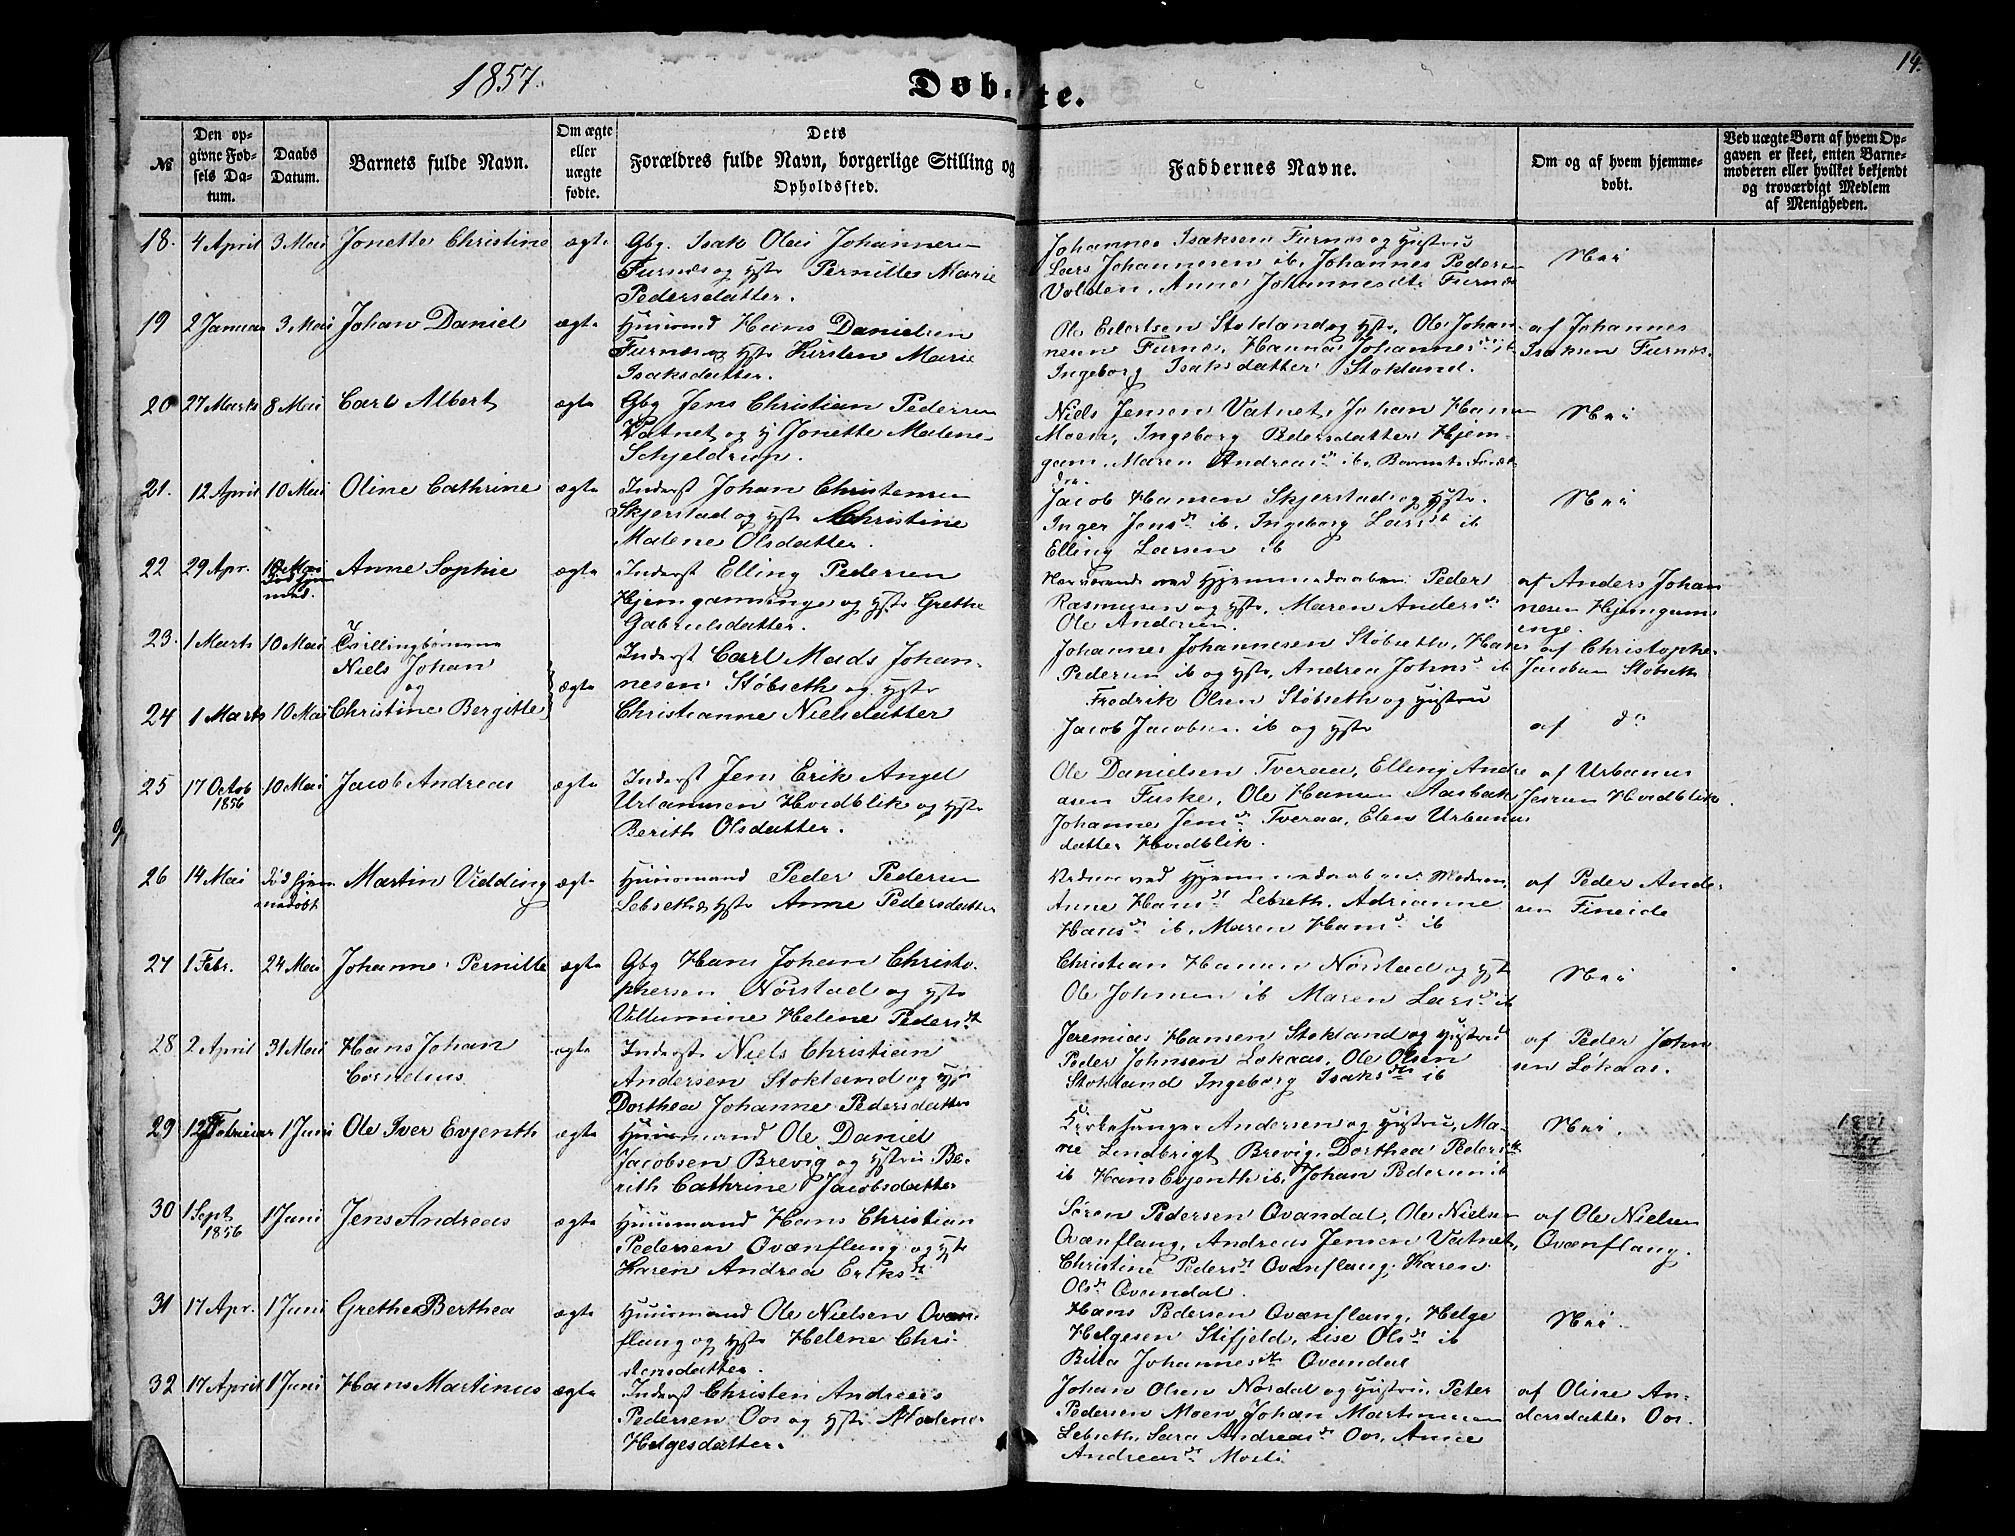 1857.
Døb-
te.
14.
№
Den op-
givne Fød-
sels Da-
tum.
Daabs
Datum.
Barnets fulde Navn.
Om ægte
eller
uægte
fødte.
Dets
Forældres fulde Navn, borgerlige Stilling og
Opholdssted.
Faddernes Navne.
Om og af hvem hjemme-
døbt.
Ved uægte Børn af hvem Op-
gaven er skeet, enten Barne-
moderen eller hvilket bekjendt
og troværdigt Medlem
af Menigheden.
18. 4 April 3 Mai Jonette Christine ægte
Gbg. Isak Olai Johannesen
Furnes og Hstr Pernille Marie
Pedersdatter.
Johannes Isaksen Furnes og Hustru
Lars Johannesen ib, Johannes Pedersen
Volden, Anne Johannesdt Furnes
Nei
19 2 Januar 3 Mai Johan Daniel ægte
Huusmd Hans Danielsen
Furnes og Hstr Kirsten Marie
Isaksdatter.
Ole Eilertsen Stokland og Hstr, Ole Johan-
nesen Furnes, Hanna Johannesdt ib
Ingeborg Isaksdatter Stokland.
af Johannes
Isaksen Furnes.
20 27 Marts 8 Mai Carl Albert ægte
Gbg Jens Christian Pedersen
Vatnet og H Jonette Malene
Schjeldrup.
Niels Jensen Vatnet, Johan Hansen
Moen, Ingeborg Pedersdatter Hjem-
gam, Maren Andreasdt ib, Barnets Foræl-
dre.
Nei
21. 12 April 10 Mai Oline Cathrine ægte
Inderst Johan Christensen
Skjerstad og Hstr Christine
Malene Olsdatter.
Jacob Hansen Skjerstad og Hstr.
Inger Jensdt ib, Ingeborg Larsdt ib
Elling Larsen ib
Nei
22 29 Apr. 10 Mai Anne Sophie ægte
Inderst Elling Pedersen
Hjemgamminge og Hstr Grethe
Gabrielsdatter.
Nærværende ved Hjemmedaaben: Peder
Rasmusen og Hstr, Maren Andersdt
Ole Andersen.
af Anders Johan
nesen Hjemgam
inge.
23. 1 Marts 10 Mai Tvillingbørnene
Niels Johan
og
ægte
Inderst Carl Mads Johan-
nesen Støbseth og Hstr
Johannes Johannesen Støbseth, Hans
Pedersen ib og Hstr, Andrea Johnsdt ib
af Christophe-
Jacobsen Støbseth
24 1 Marts 10 Mai Christine Bergitte
Christianne Nielsdatter
Fredrik Olsen Støbseth og Hustru
Jacob Jacobsen ib og Hstr
af do
25 17 Octob 1856 10 Mai Jacob Andreas ægte
Inderst Jens Erik Angel
Urbanusen Hvidblik og Hstr
Berith Olsdatter.
Ole Danielsen Tveraa, Elling Andre
asen Fuske, Ole Hansen Aasbak
Johanne Jensdt Tveraa, Elen Urbanus
datter Hvidblik.
af Urbanus
Jensen Hvidblik.
26 14 Mai Død hjem
medøbt Martin Vidding ægte
Huusmand Peder Pedersen
Lebseth, Hstr Anne Pedersdatter
ved Hjemmedaaben: Moderen,
Anne Hansdt Lebseth, Adrianne
Hansdt ib, Maren Hansdt ib
af Peder Ander-
sen Fineide
27 1 Febr. 24 Mai Johanne Pernille ægte
Gbg Hans Johan Christo-
phersen Nørstad og Hstr
Villumine Helene Pedersdt
Christian Hansen Nørstad og Hstr
Ole Johnsen ib Maren Larsdt ib
Nei
28 2 April 31 Mai Hans Johan
Cornelius ægte
Inderst Niels Christian
Andersen Stokland og Hstr
Dorthea Johanne Pedersdatter
Jeremias Hansen Stokland og Hustru
Peder Johnsen Løkaas, Ole Olsen
Stokland Ingeborg Isaksdtr ib
af Peder John
sen Løkaas.
29 12 Februar 1 Juni Ole Iver Evjenth ægte
Huusmand Ole Daniel
Jacobsen Brevig og Hstru Be-
rith Cathrine Jacobsdatter
Kirkesanger Andersen og Hustru, Ma-
rie Lindbrigt Brevig, Dorthea Pedersdt
ib Hans Evjenth ib, Johan Pedersen ib
Nei.
1881
30 1 Sept. 1856 1 Juni Jens Andreas ægte
Huusmand Hans Christian
Pedersen Qvænflaug og Hstr
Karen Andrea Eriksdt
Søren Pedersen Qvandal, Ole Nielsen
Qvænflaug, Andreas Jensen Vatnet,
Christine Pedersdt Qvænflaug, Karen
Olsdt Qvandal.
af Ole Nielsen
Qvænflaug.
31 17 Apr. 1 Juni Grethe Berthea ægte
Huusmand Ole Nielsen Qvæn-
flaug og Hstr Helene Chri-
stensdatter.
Hans Pedersen Qvænflaug, Helge
Helgesen Stifjeld, Lise Olsdt ib
Bitta Johannesdt Qvandal
Nei.
32 17 April 1 Juni Hans Martinus ægte
Inderst Christen Andreas
Pedersen Oos og Hstr Malene
Helgesdatter.
Johan Olsen Nordal og Hustru, Peter
Pedersen Moen Johan Martinusen
Lebseth, Sara Andreasdt Oos, Anne
Andreasdt Mosti
af Oline An-
dersdatter Oos.